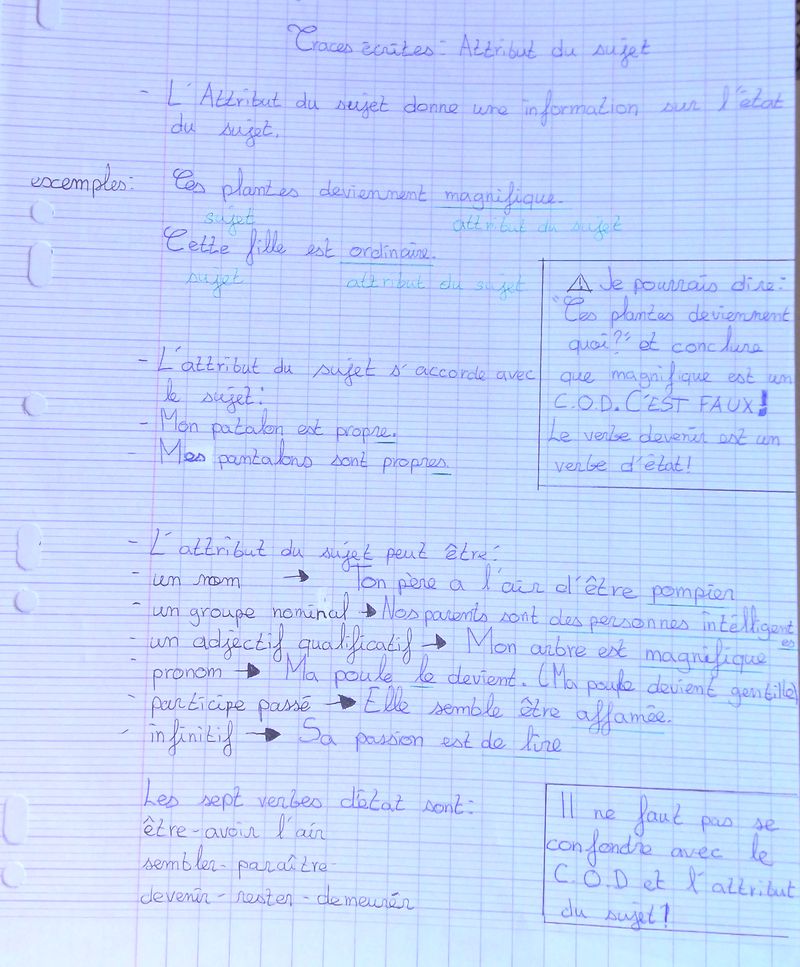 Traces écrites: Attribut du sujet
- L'Attribut du sujet donne une information sur l'état
du sujet.
exemples: Ces plantes deviennent magnifique.
sujet attribut du sujet
Cette fille est ordinaire.
sujet attribut du sujet
⚠ Je pourrais dire:
"Ces plantes deviennent
quoi?" et conclure
que magnifique est un
C.O.D. C'EST FAUX!
Le verbe devenir est un
verbe d'état!
- L'attribut du sujet s'accorde avec
le sujet:
- Mon patalon est propre.
- Mes pantalons sont propres.
- L'attribut du sujet peut être:
- un nom → Ton père a l'air d'être pompier
- un groupe nominal → Nos parents sont des personnes intélligent
es
- un adjectif qualificatif → Mon arbre est magnifique
- pronom → Ma poule le devient. (Ma poule devient gentille)
- participe passé → Elle semble être affamée.
- infinitif → Sa passion est de lire
Les sept verbes d'état sont:
être-avoir l'air
sembler-paraître-
devenir-rester-demeurér
Il ne faut pas se
confondre avec le
C.O.D et l'attribut
du sujet!